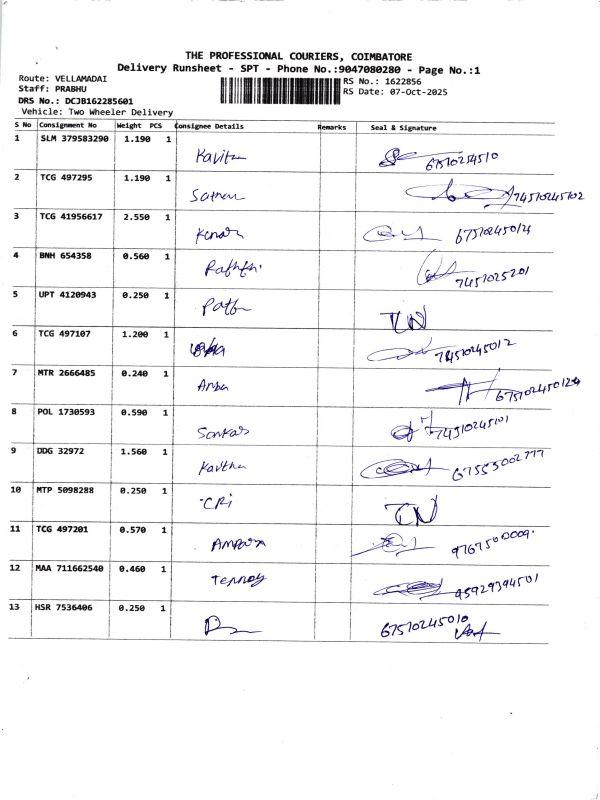 THE PROFESSIONAL COURIERS, COIMBATORE
Delivery Runsheet - SPT - Phone No.:9047080280 - Page No.:1
Route: VELLAMADAI
RS No.: 1622856
Staff: PRABHU
RS Date: 07-Oct-2025
DRS No.: DCJB162285601
Vehicle: Two Wheeler Delivery
S No Consignment No Weight PCS Consignee Details Remarks Seal & Signature
1 SLM 379583290 1.190 1 Kavitha
2 TCG 497295 1.190 1 74510245102
3 TCG 41956617 2.550 1
4 BNH 654358 0.560 1 7451025201
5 UPT 4120943 0.250 1 TN
6 TCG 497107 1.200 1
7 MTR 2666485 0.240 1
8 POL 1730593 0.590 1 74510245101
9 DDG 32972 1.560 1 Kavtha
10 MTP 5098288 0.250 1 CRI TN
11 TCG 497201 0.570 1
12 MAA 711662540 0.460 1 95929394501
13 HSR 7536406 0.250 1 67510245010